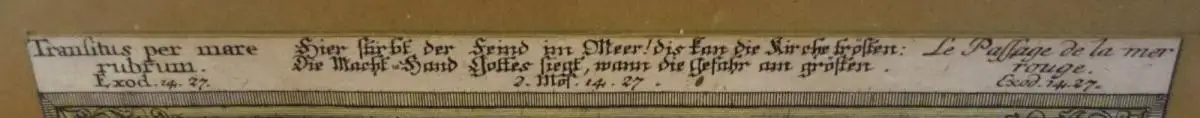 Transitus per mare
rubrum.
Exod. 14. 27.
Hier stirbt der Feind im Meer! dis kan die Kirche trösten:
Die Macht-Hand Gottes siegt, wann die Gefahr am grösten.
2. Mos. 14. 27.
Le Passage de la mer
rouge.
Exod. 14. 27.